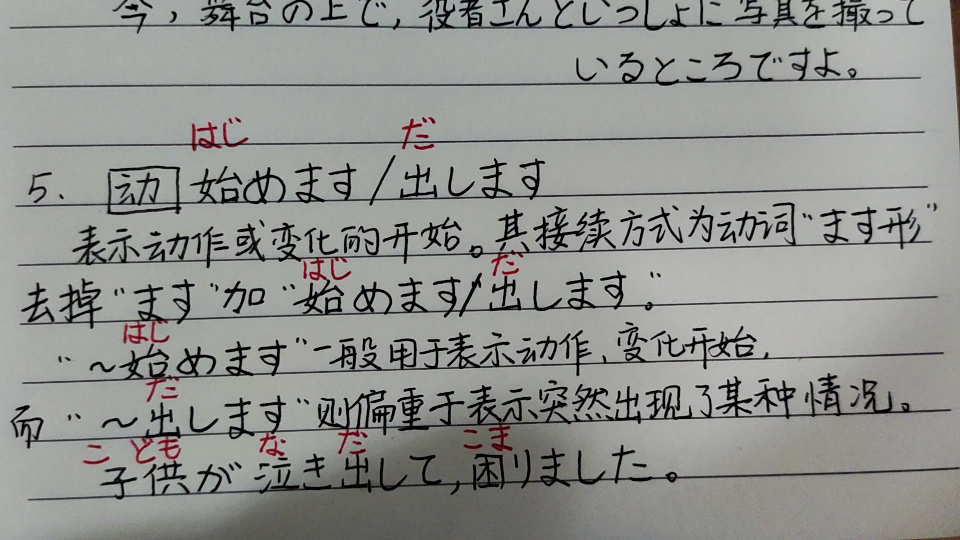 今，舞台の上で，役者さんといっしょに写真を撮って
いるところですよ。
はじ だ
5. 动 始めます/出します
表示动作或变化的开始。其接续方式为动词“ます形”
はじ だ
去掉“ます”加“始めます/出します”。
はじ
“～始めます”一般用于表示动作,变化开始,
だ
而“～出します”则偏重于表示突然出现了某种情况。
こ ども な だ こま
子供が泣き出して,困りました。